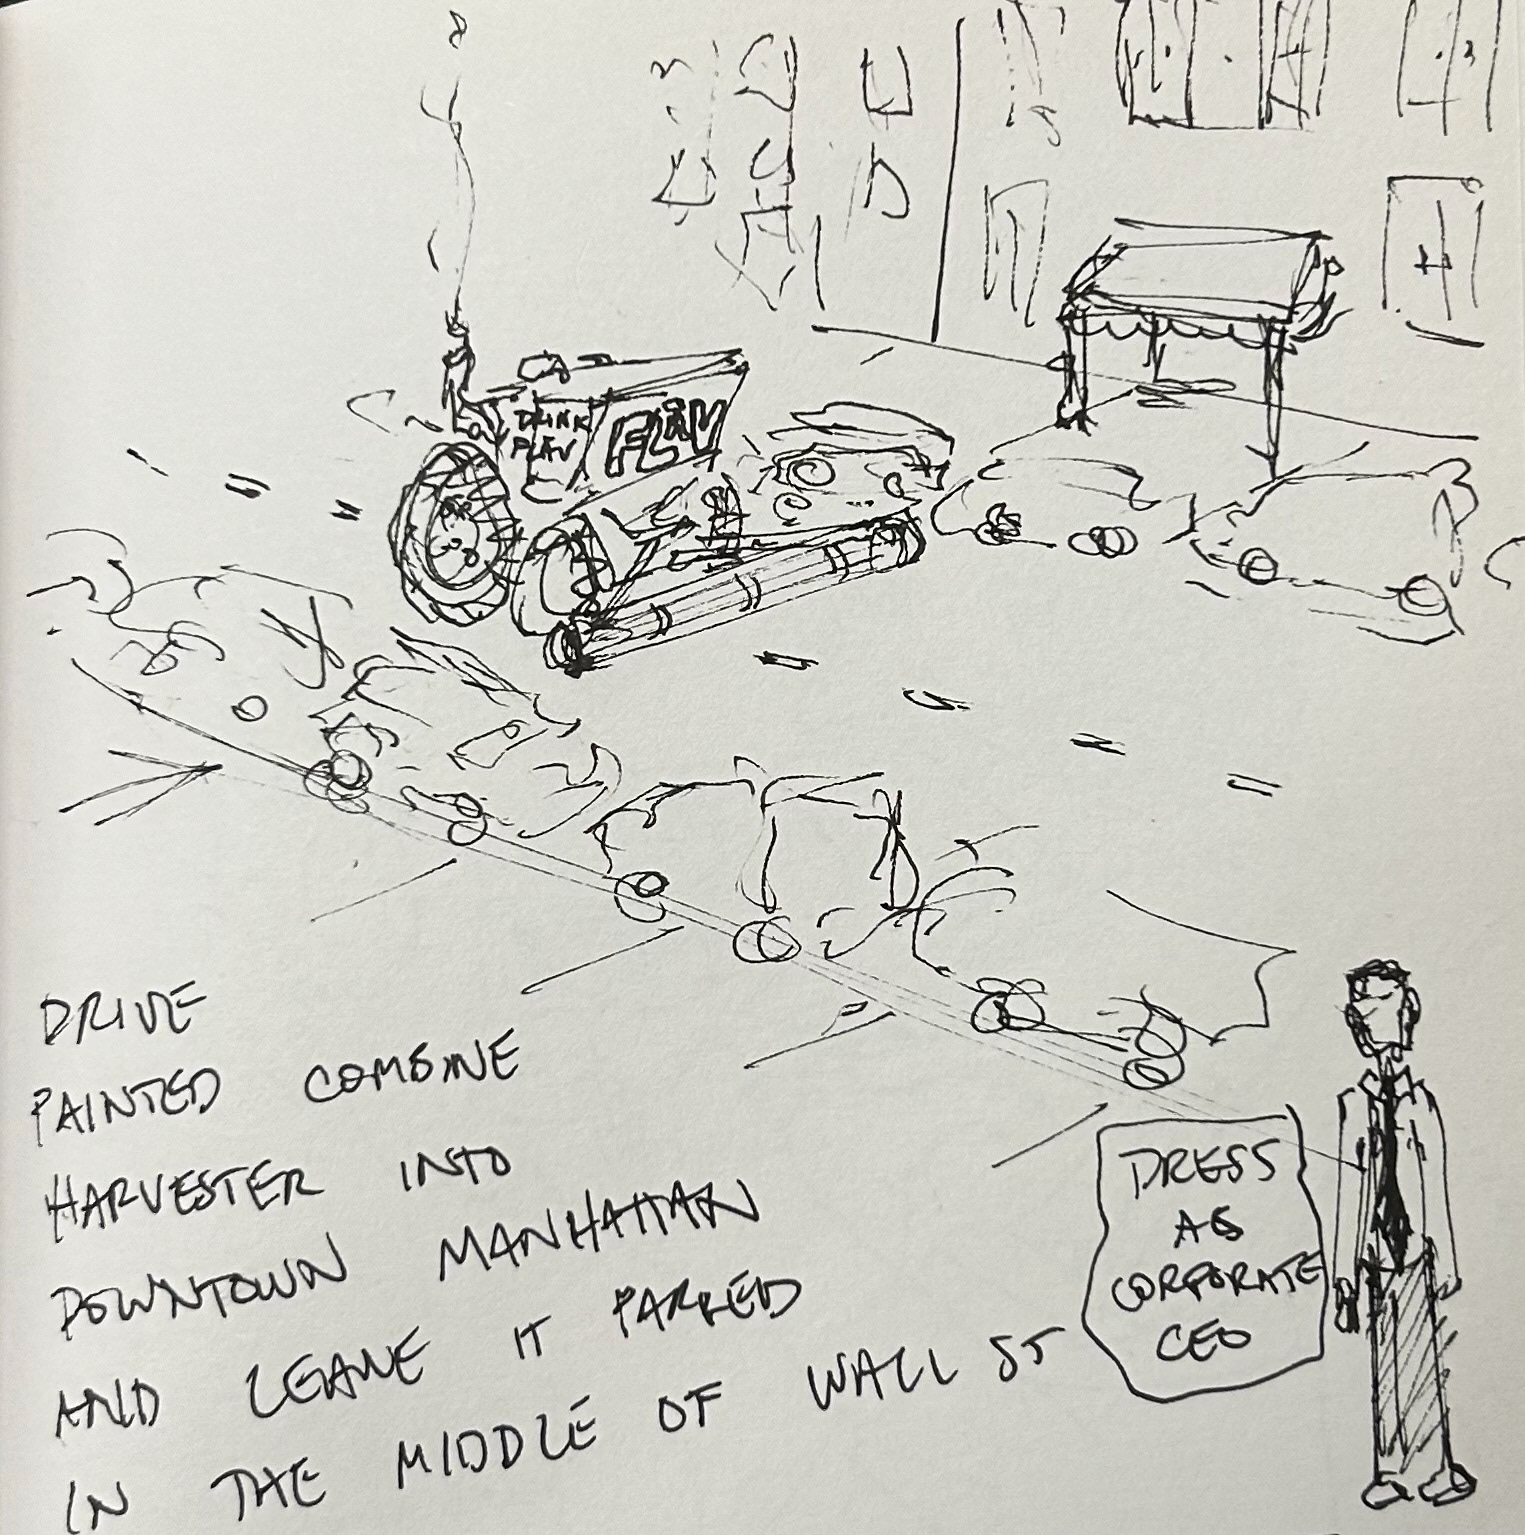 DRINK
FLAV
FLAV
DRIVE
PAINTED COMBINE
HARVESTER INTO
DOWNTOWN MANHATTAN
AND LEAVE IT PARKED
IN THE MIDDLE OF WALL ST
DRESS
AS
CORPORATE
CEO